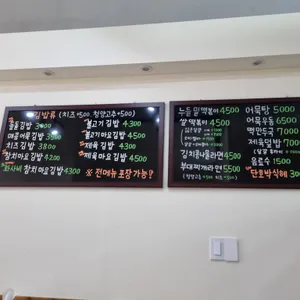 김밥류 (치즈+500, 청양고추+500)
돌돌김밥 3000
매콤어묵김밥 3500
치즈 김밥 3800
참치마요김밥 4200
와사비 참치마요김밥 4300
불고기 김밥 4300
불고기마요김밥 4500
제육 김밥 4300
제육마요김밥 4500
※ 전메뉴 포장가능?
누들밀떡볶이 4500
쌀떡볶이 4500
김치콩나물라면 4500
부대찌개라면 5500
어묵탕 5000
어묵우동 6500
떡만두국 7000
제육덮밥 7000
음료수 1500
단호박식혜